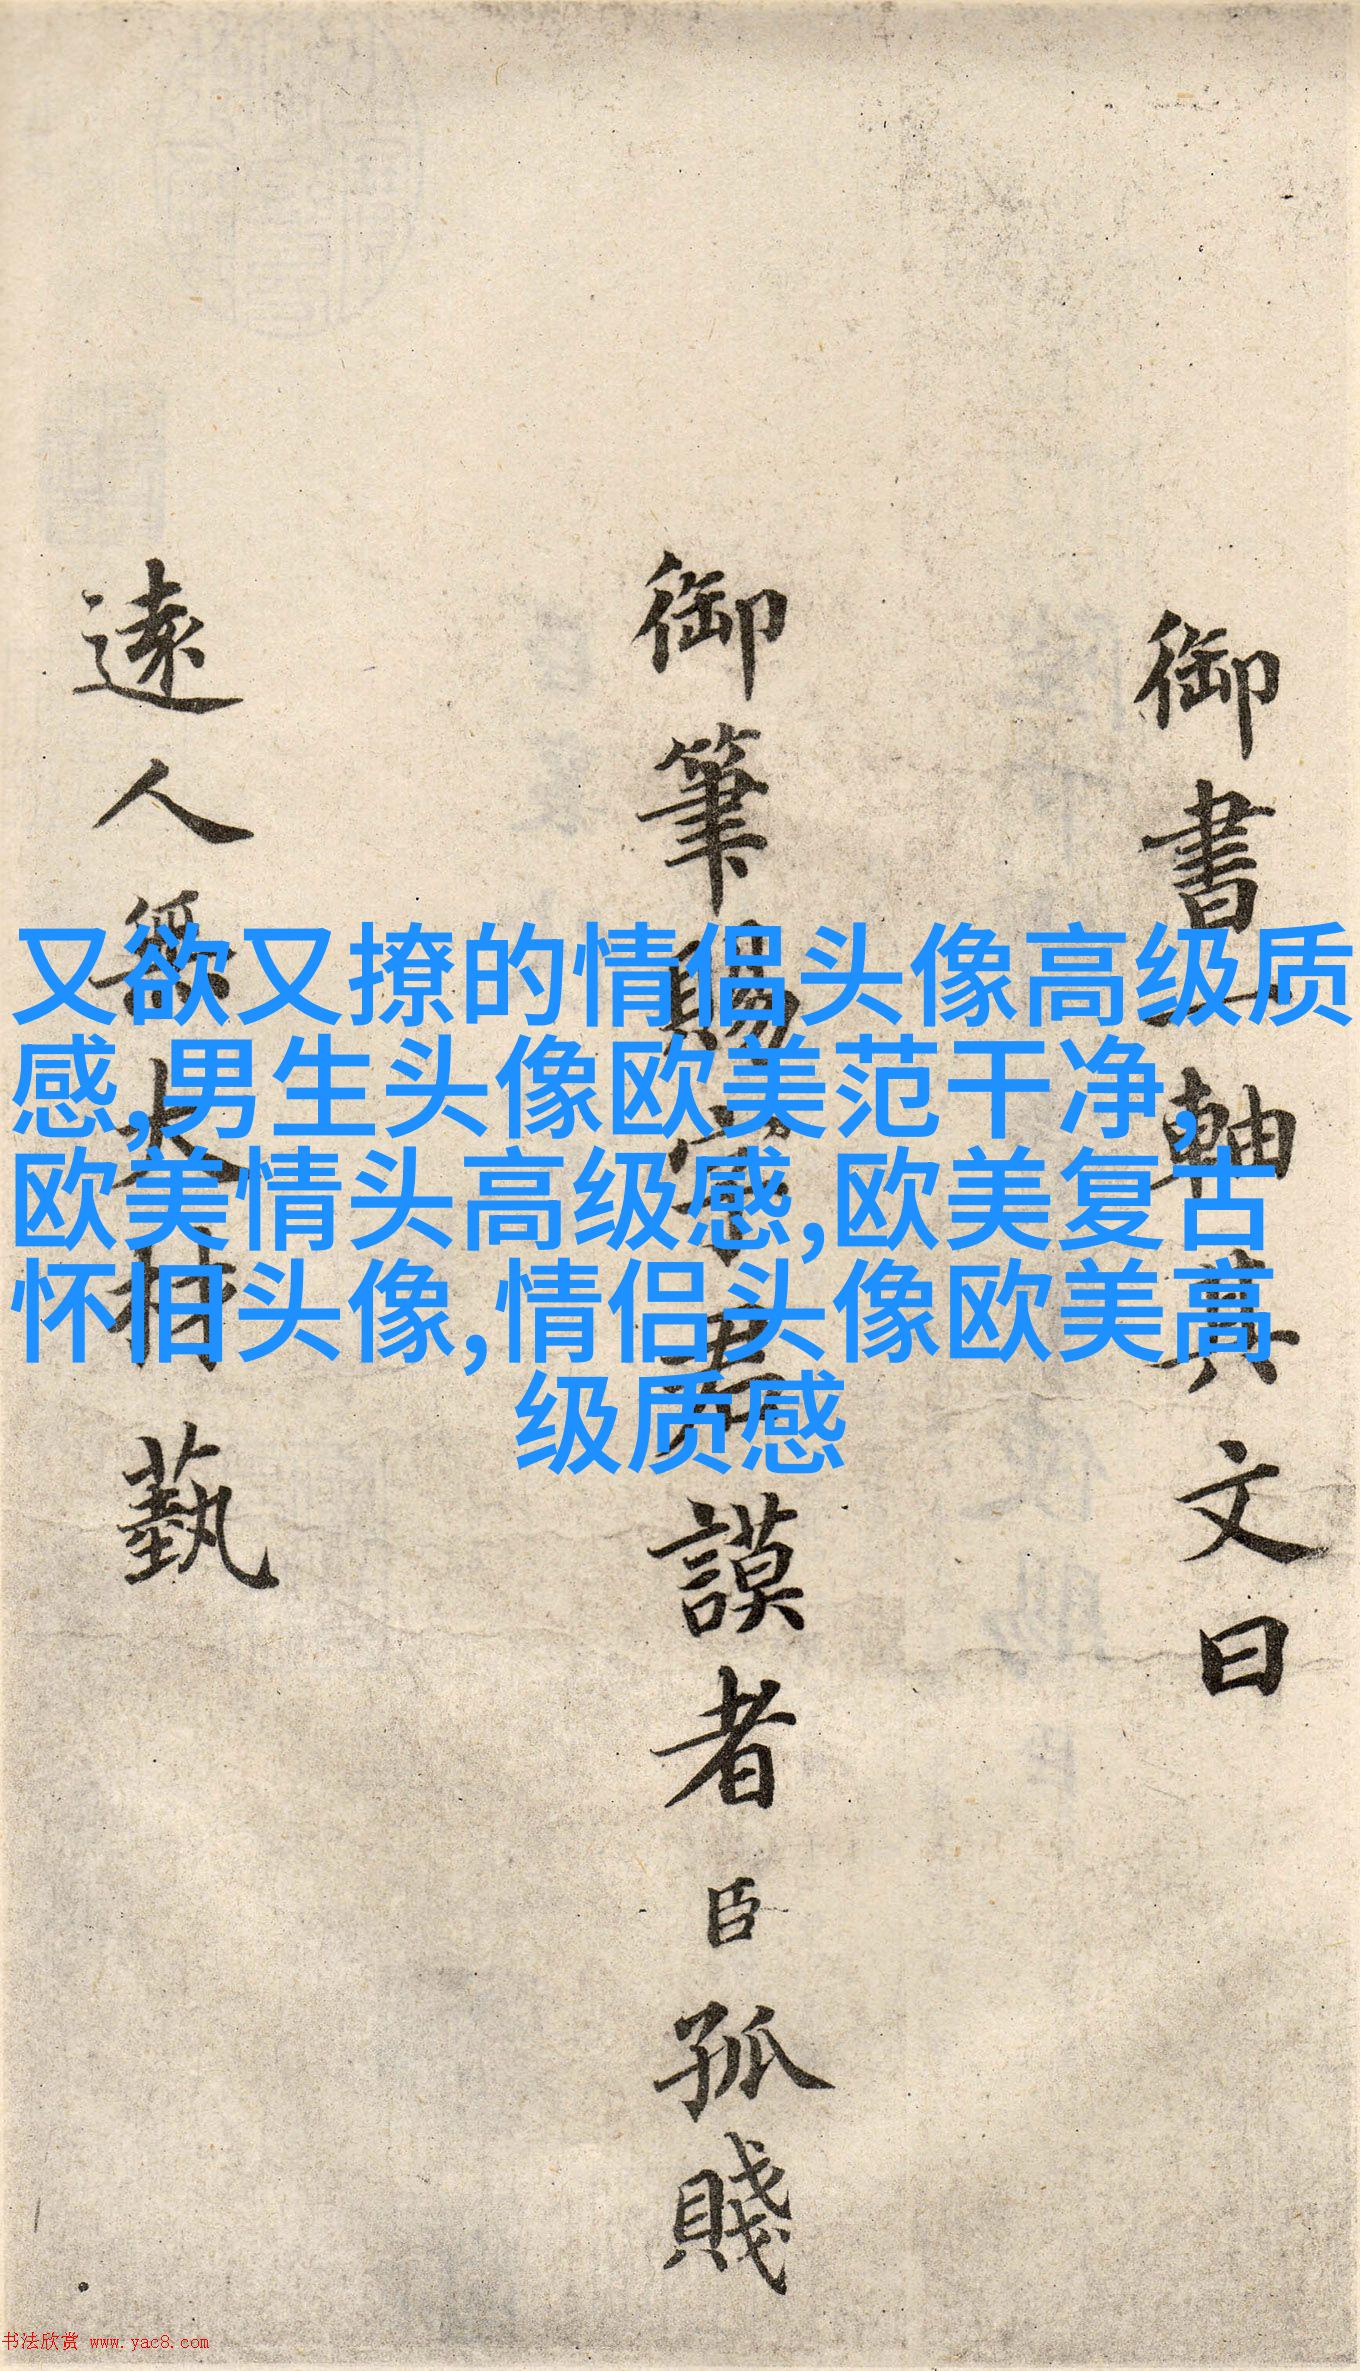 御書一軸其文曰
御筆賜字君謨者臣孤賤
遠人無大材藝
又欲又撩的情侣头像高级质
感,男生头像欧美范干净,
欧美情头高级感,欧美复古
怀旧头像,情侣头像欧美高
级质感
书法欣赏 www.yac8.com